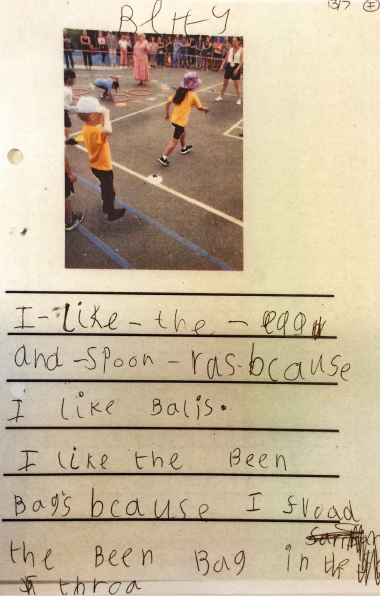 13/7 I
I - like - the - egg
and - spoon - ras. bcause
I like Balis.
I like the Been
Bags bcause I froad
the Been Bag in the
throa